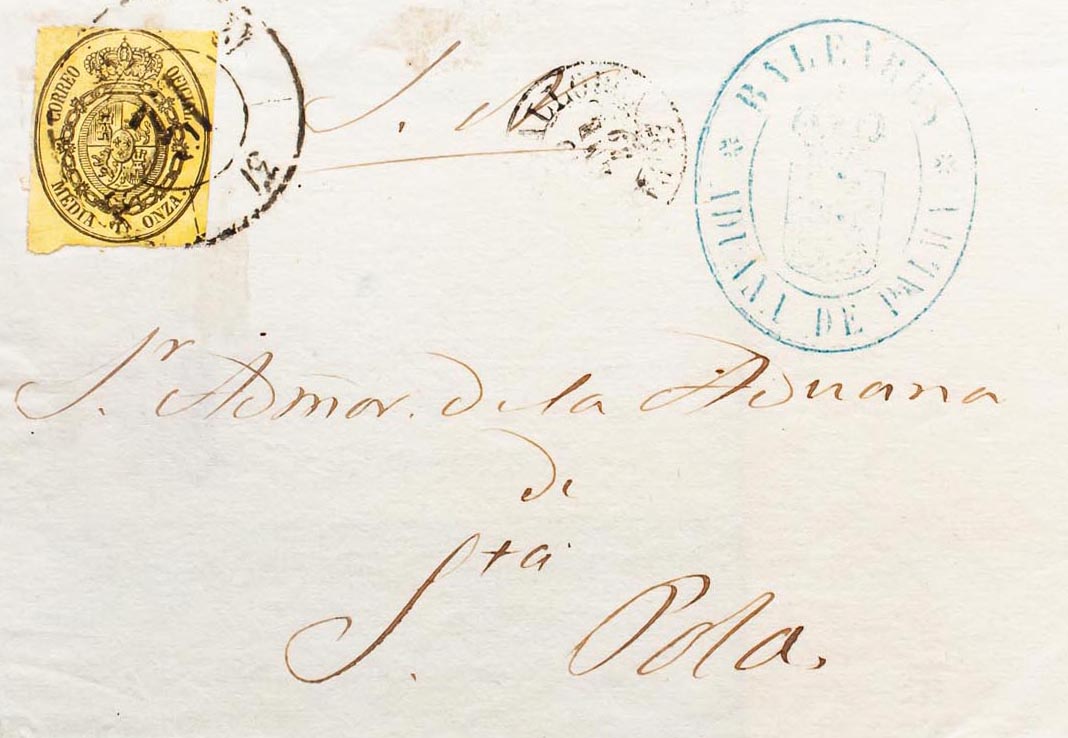 CORREO OFICIAL
MEDIA ONZA.
31
S. N.
ALICANTE
* BALEARES *
ADUANA DE PALMA
Sr. Admor. de la Aduana
de
Sta. Pola.